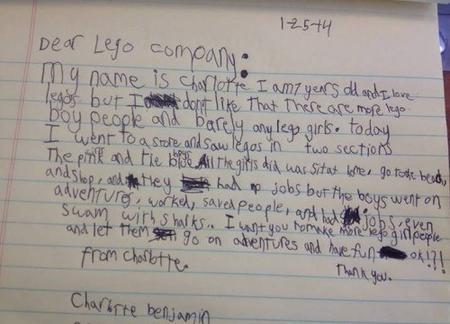 1-25-14
Dear Lego company:
My name is Charlotte I am 7 years old and I love
legos but I don't like that There are more lego
boy people and barely any lego girls. today
I went to a store and saw legos in two sections
The pink and the blue boys All the girls did was sit at home, go to the beach,
and shop, and they had no jobs but the boys went on
adventures, worked, saved people, and had jobs, even
swam with sharks. I want you to make more lego girl people
and let them go on adventures and have fun ok!?!
from Charlotte. Thank you.
Charlotte benjamin